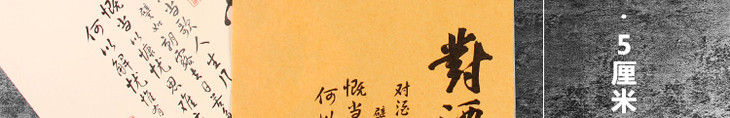 当歌人生几
譬如朝露去日苦
慨当以慷忧思难
何以解忧惟有
對酒
对酒
譬
慨当
何以
·5厘米